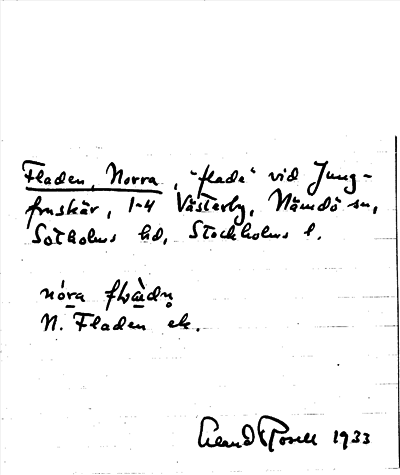 Fladen, Norra, "flada" vid Jung-
fruskär, 1-4 Västerby, Nämdö sn,
Sotholms hd, Stockholms l.
nó̱ra flwà̱dn̥
N. Fladen ek.
Erland Rosell 1933